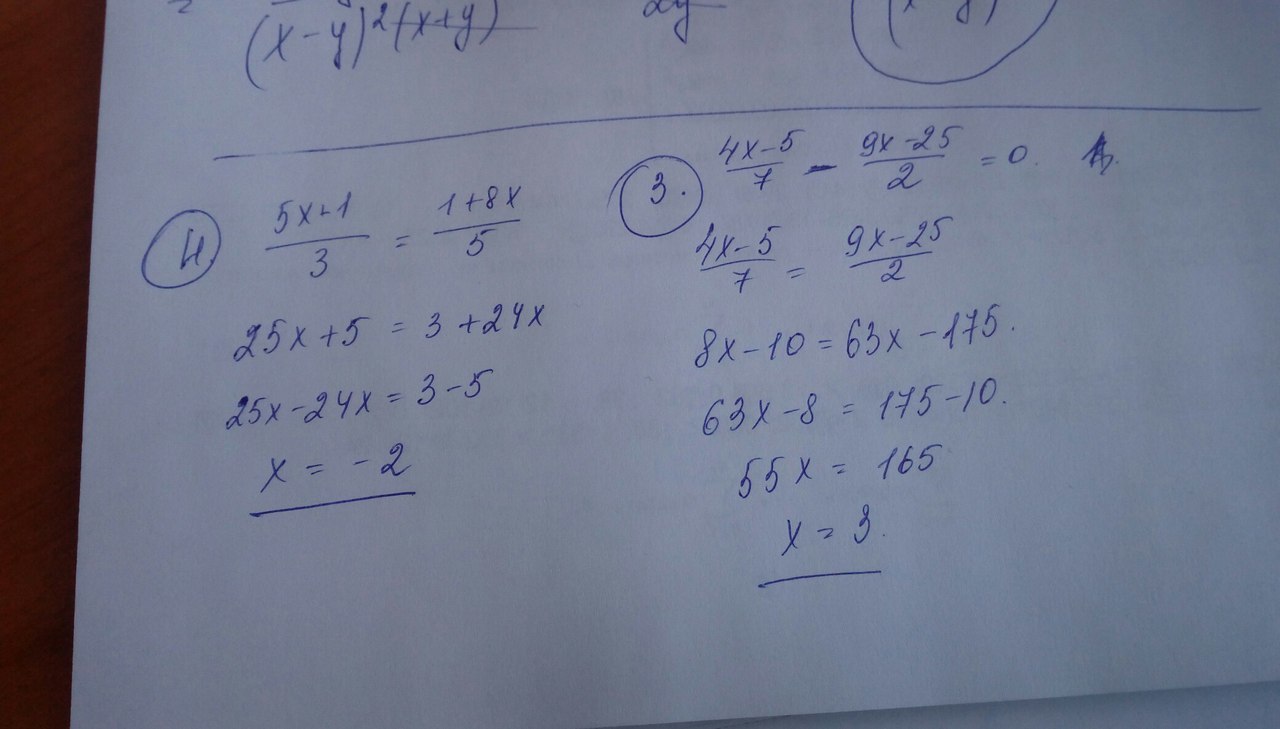 (x-y)²(x+y) 2y
4 (5x+1)/3 = (1+8x)/5
25x+5 = 3+24x
25x-24x = 3-5
x = -2
3. (4x-5)/7 - (9x-25)/2 = 0.
(4x-5)/7 = (9x-25)/2
8x-10 = 63x-175.
63x-8 = 175-10.
55x = 165
x = 3.